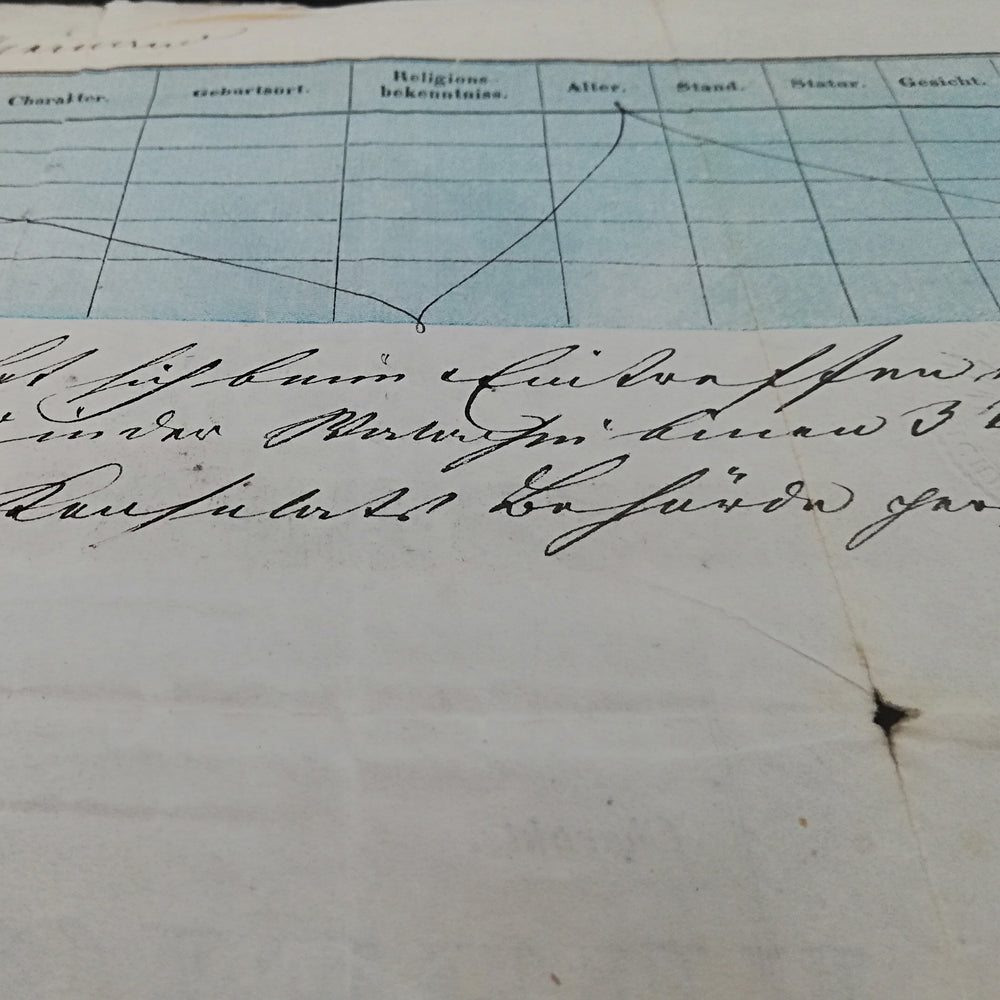 Charakter. Geburtsort. Religions- bekenntniss. Alter. Stand. Statur. Gesicht.
sich beim Eintreffen
in der Walachei binnen 3
Konsulats Behörde